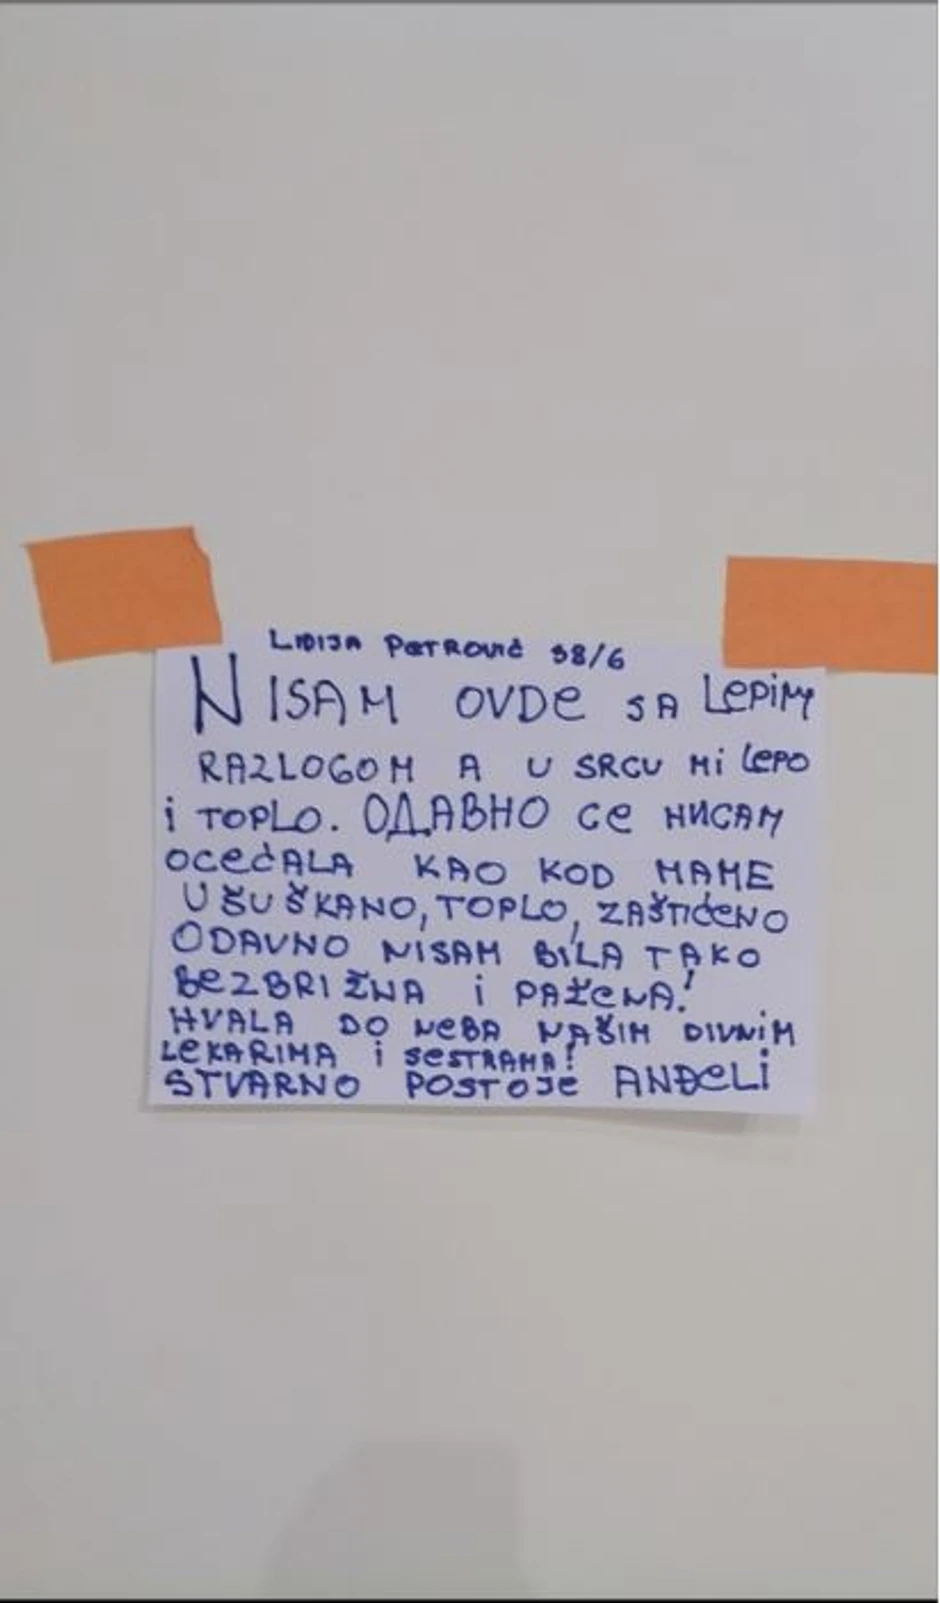 LIDIJA PeTROVIĆ 98/6
NISAM OVDe SA LePiM
RAZLOGOM A U SRCU Mi LePO
i TOPLO. ОДАВНО Се НИСАМ
OCeĆALA KAO KOD MAME
UŠUŠKANO, TOPLO, ZAŠTIĆeNO
ODAVNO NISAM BILA TAKO
BeZBRIŽNA i PAŽeNA!
HVALA DO NeBA NAŠIM DIVNIM
LeKARIMA i SeSTRAMA!
STVARNO POSTOJe ANĐeLi